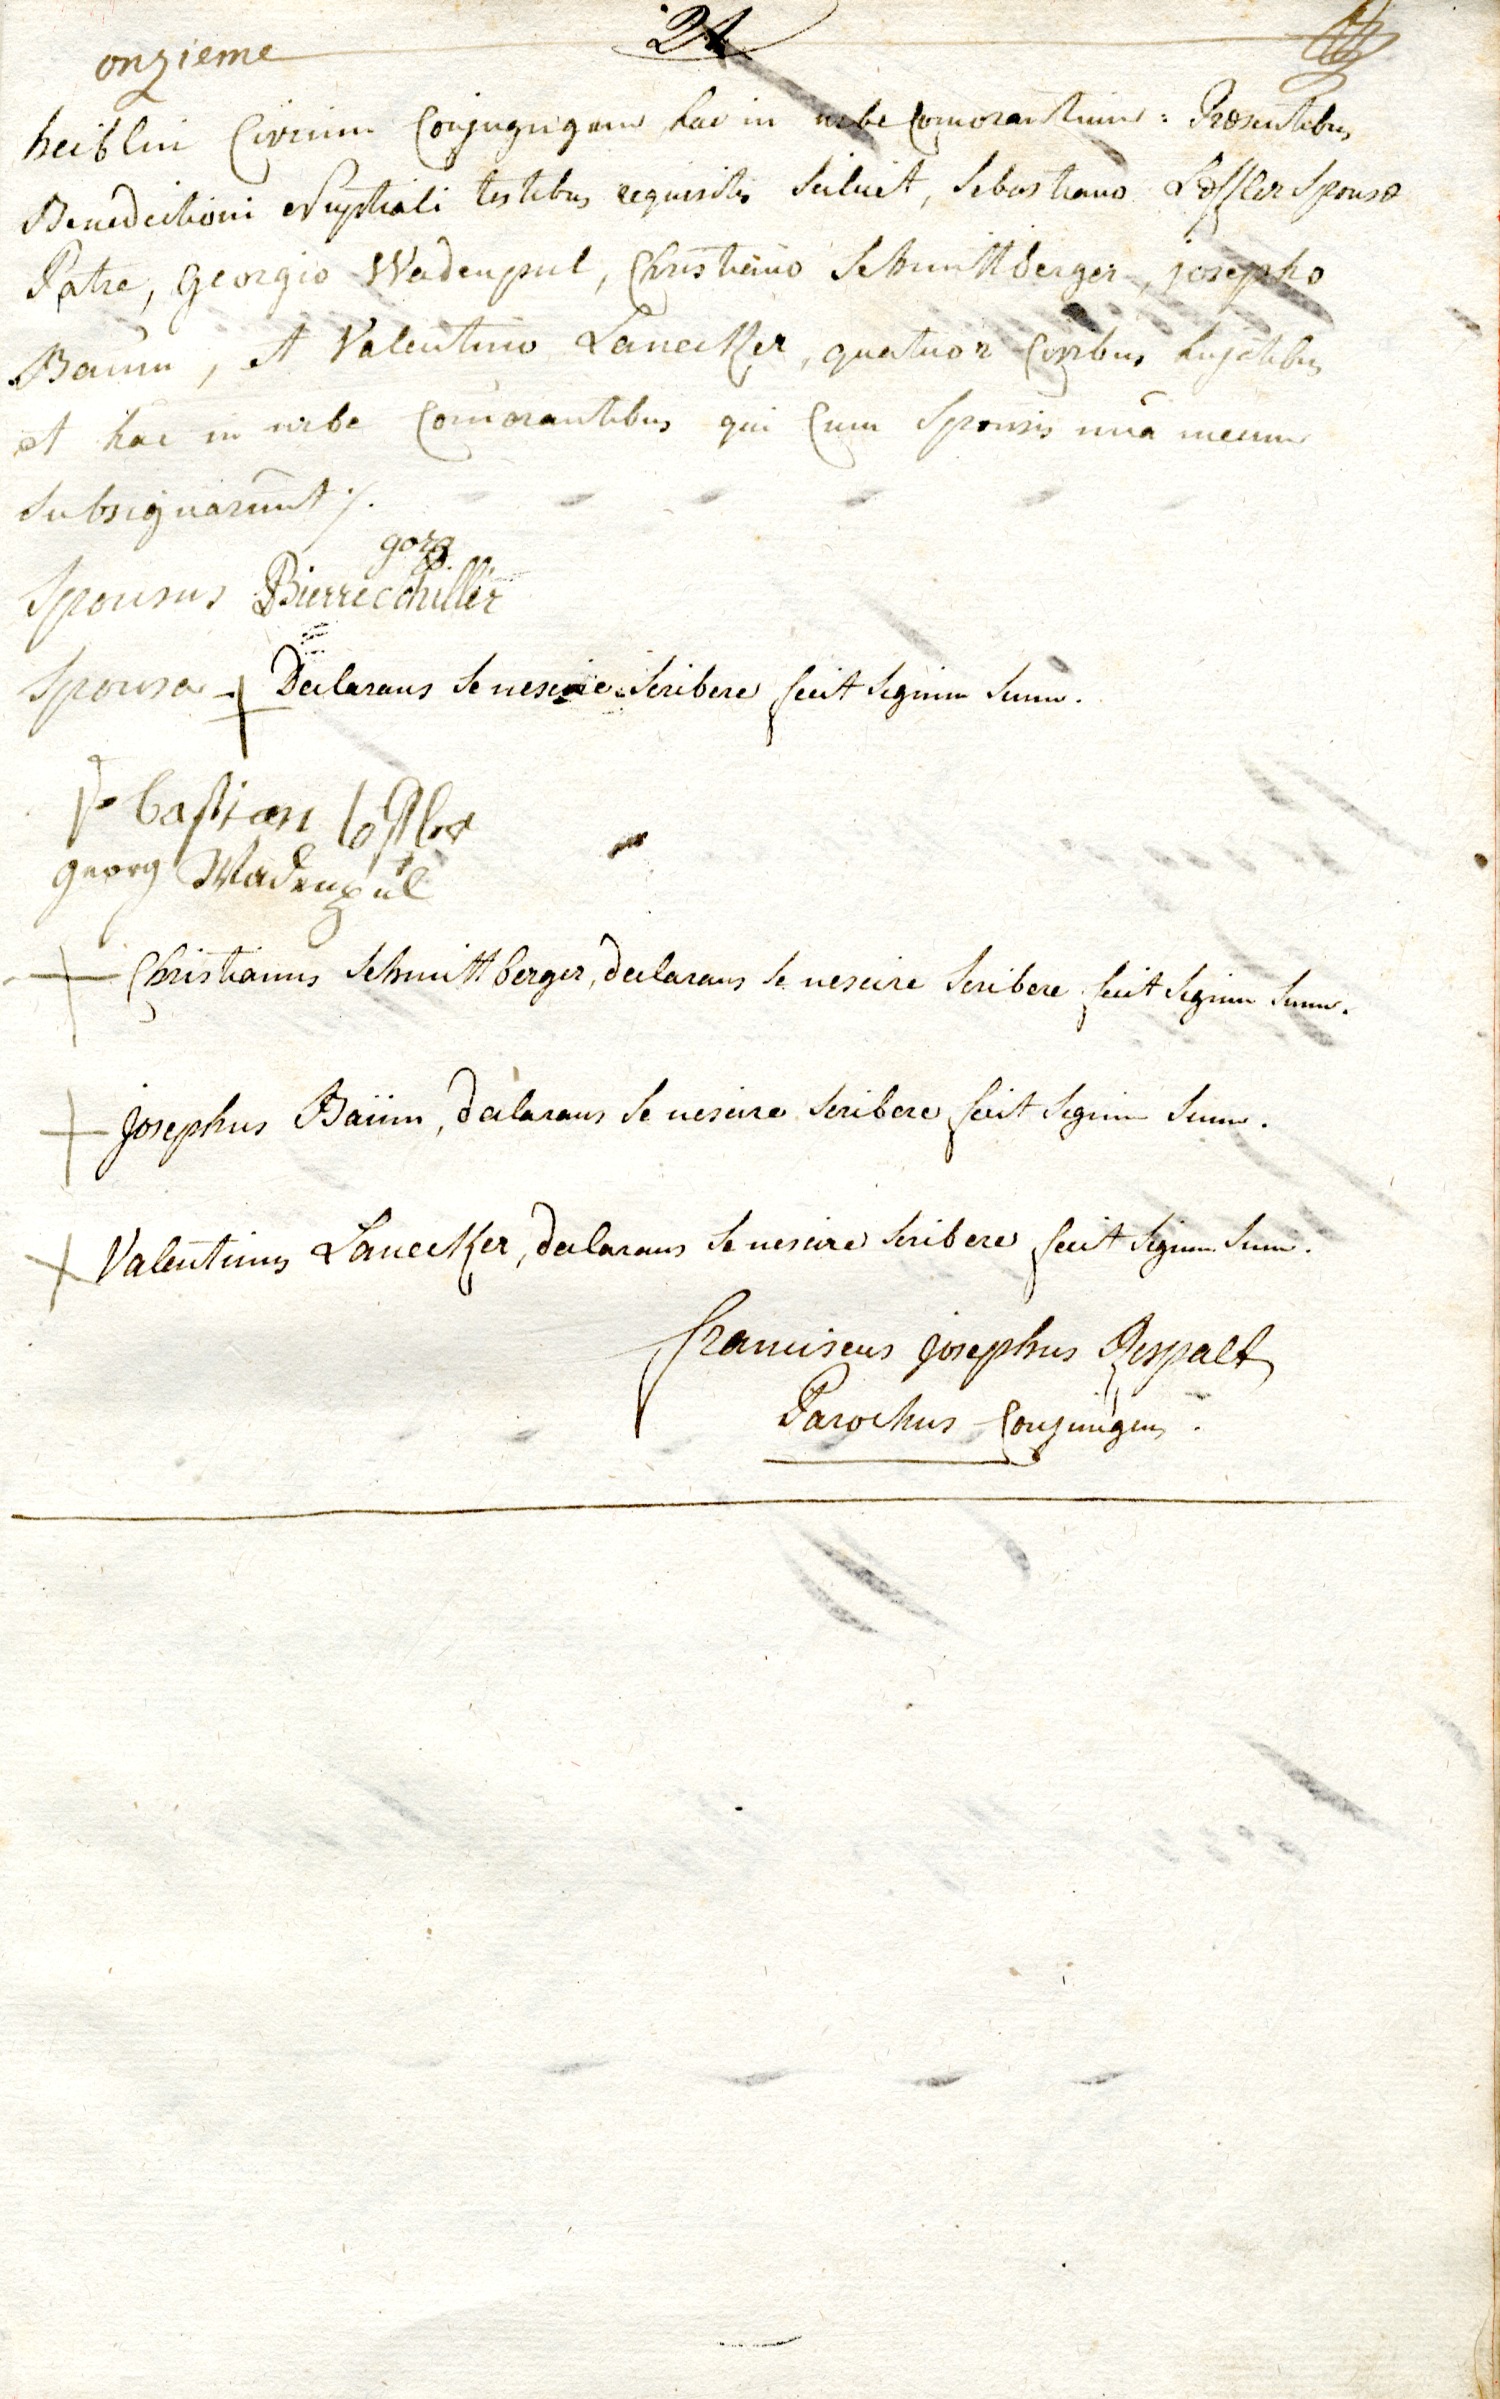 onzieme
heiblin Civium Conjugugum hac in urbe Comorantium: Præsentibus
Benedictioni Nuptiali testibus requisitis Scilicet, Sebastiano Löffler Sponsæ
Patre, Georgio Wadenpul, Christiano Schmittberger, josepho
Baum, et Valentino Laneckker, quatuor Civibus hujatibus
et hac in urbe Comorantibus qui Cum Sponsis unà mecum
Subsignarunt /.
Sponsus Bierre
Sponsa + Declarans Se nescire Scribere fecit Signum Suum.
Sebastian Löffler
georg Wadenpül
+ Christianus Schmittberger, declarans Se nescire Scribere fecit Signum Suum.
+ josephus Baüm, declarans Se nescire Scribere fecit Signum Suum.
+ Valentinus Laneckker, declarans Se nescire Scribere fecit Signum Suum.
franciscus josephus Respalt
Parochus Conjungens.